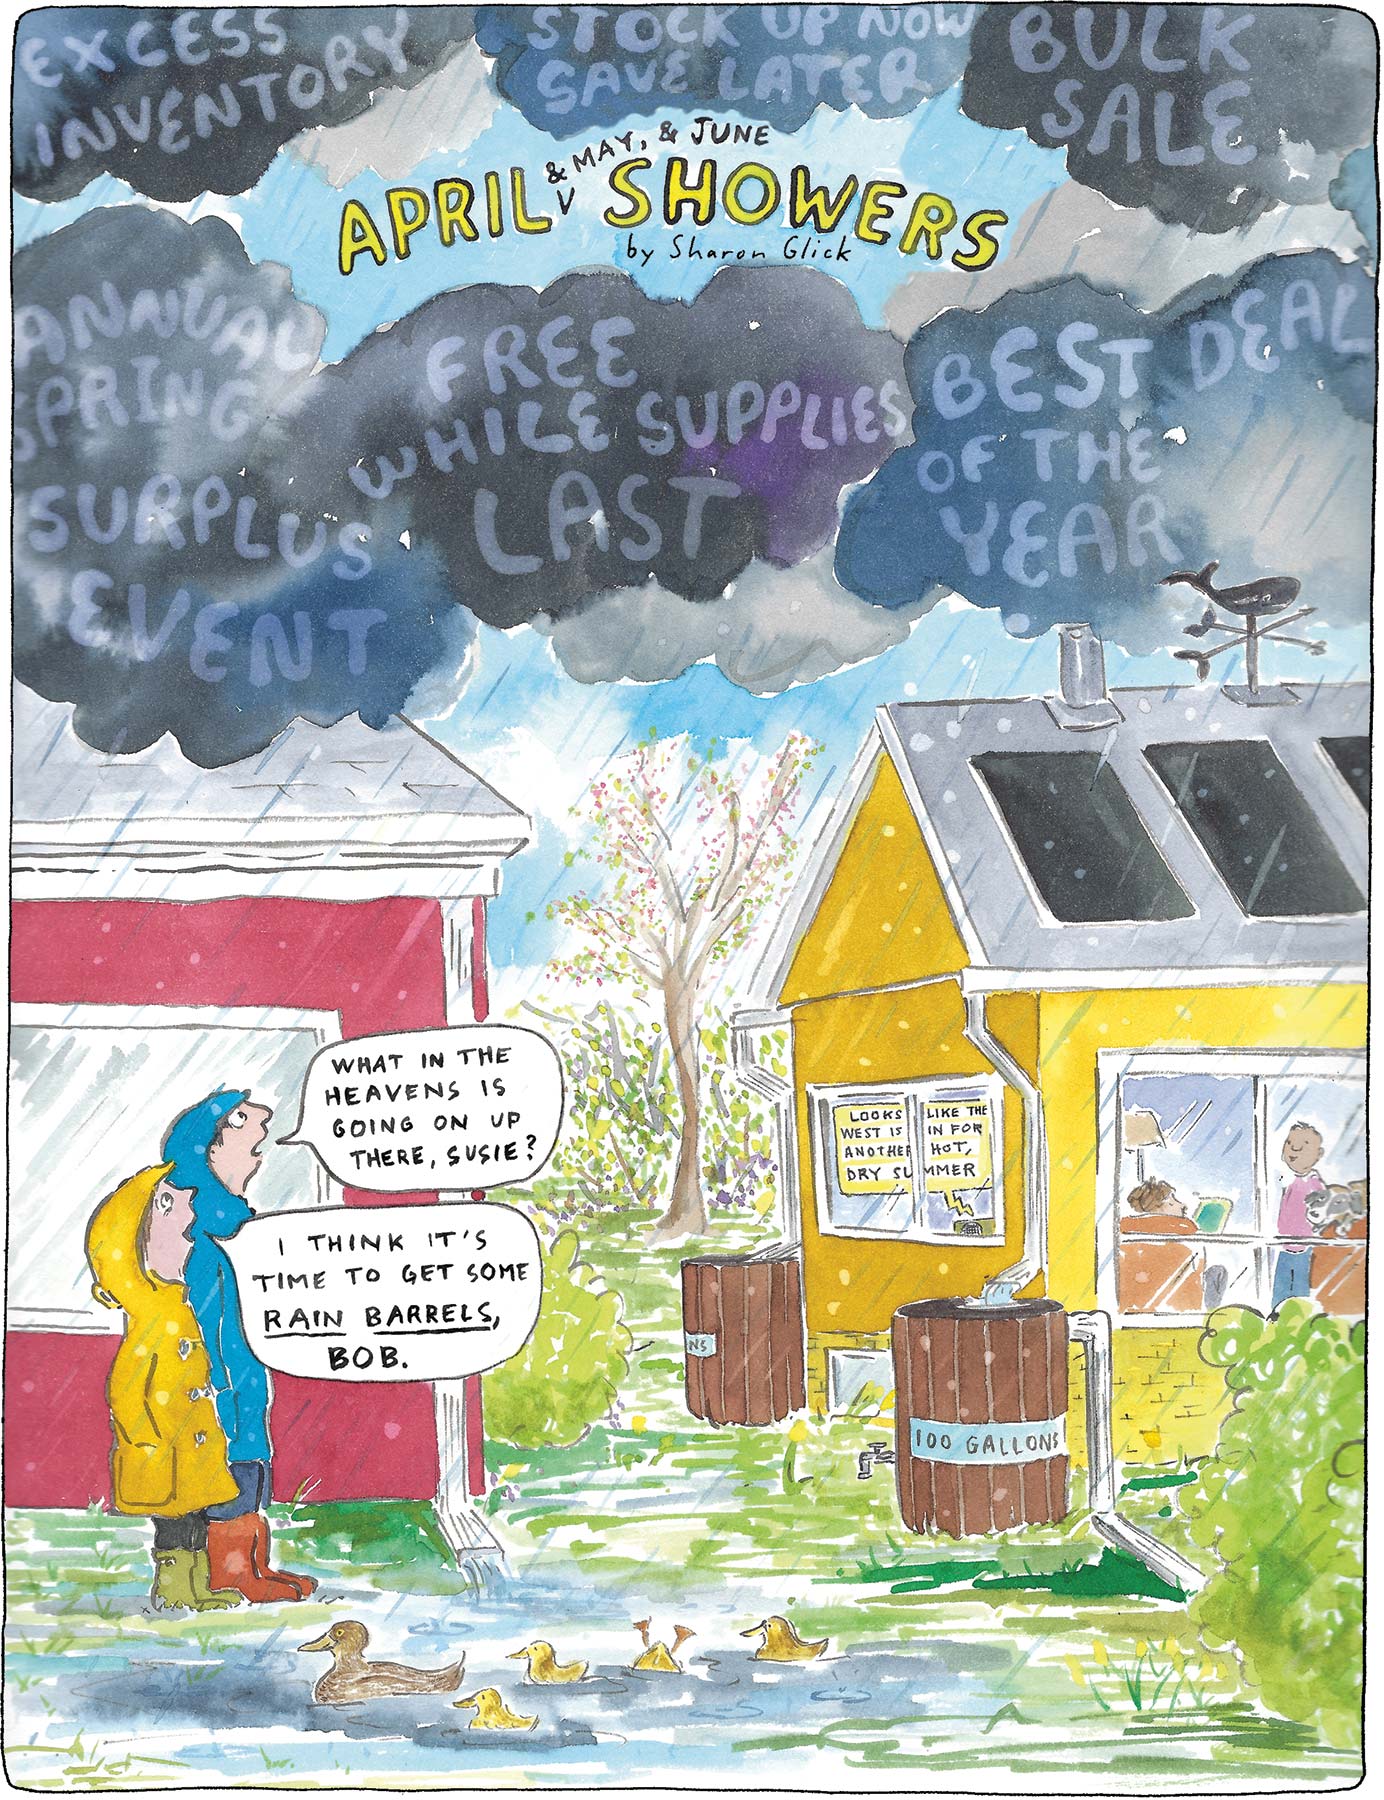 EXCESS
INVENTORY
STOCK UP NOW
SAVE LATER
BULK
SALE
& MAY, & JUNE
APRIL V SHOWERS
by Sharon Glick
ANNUAL
SPRING
SURPLUS
EVENT
FREE
WHILE SUPPLIES
LAST
BEST DEAL
OF THE
YEAR
WHAT IN THE
HEAVENS IS
GOING ON UP
THERE, SUSIE?
I THINK IT'S
TIME TO GET SOME
RAIN BARRELS,
BOB.
LOOKS LIKE THE
WEST IS IN FOR
ANOTHER HOT,
DRY SUMMER
NS
100 GALLONS